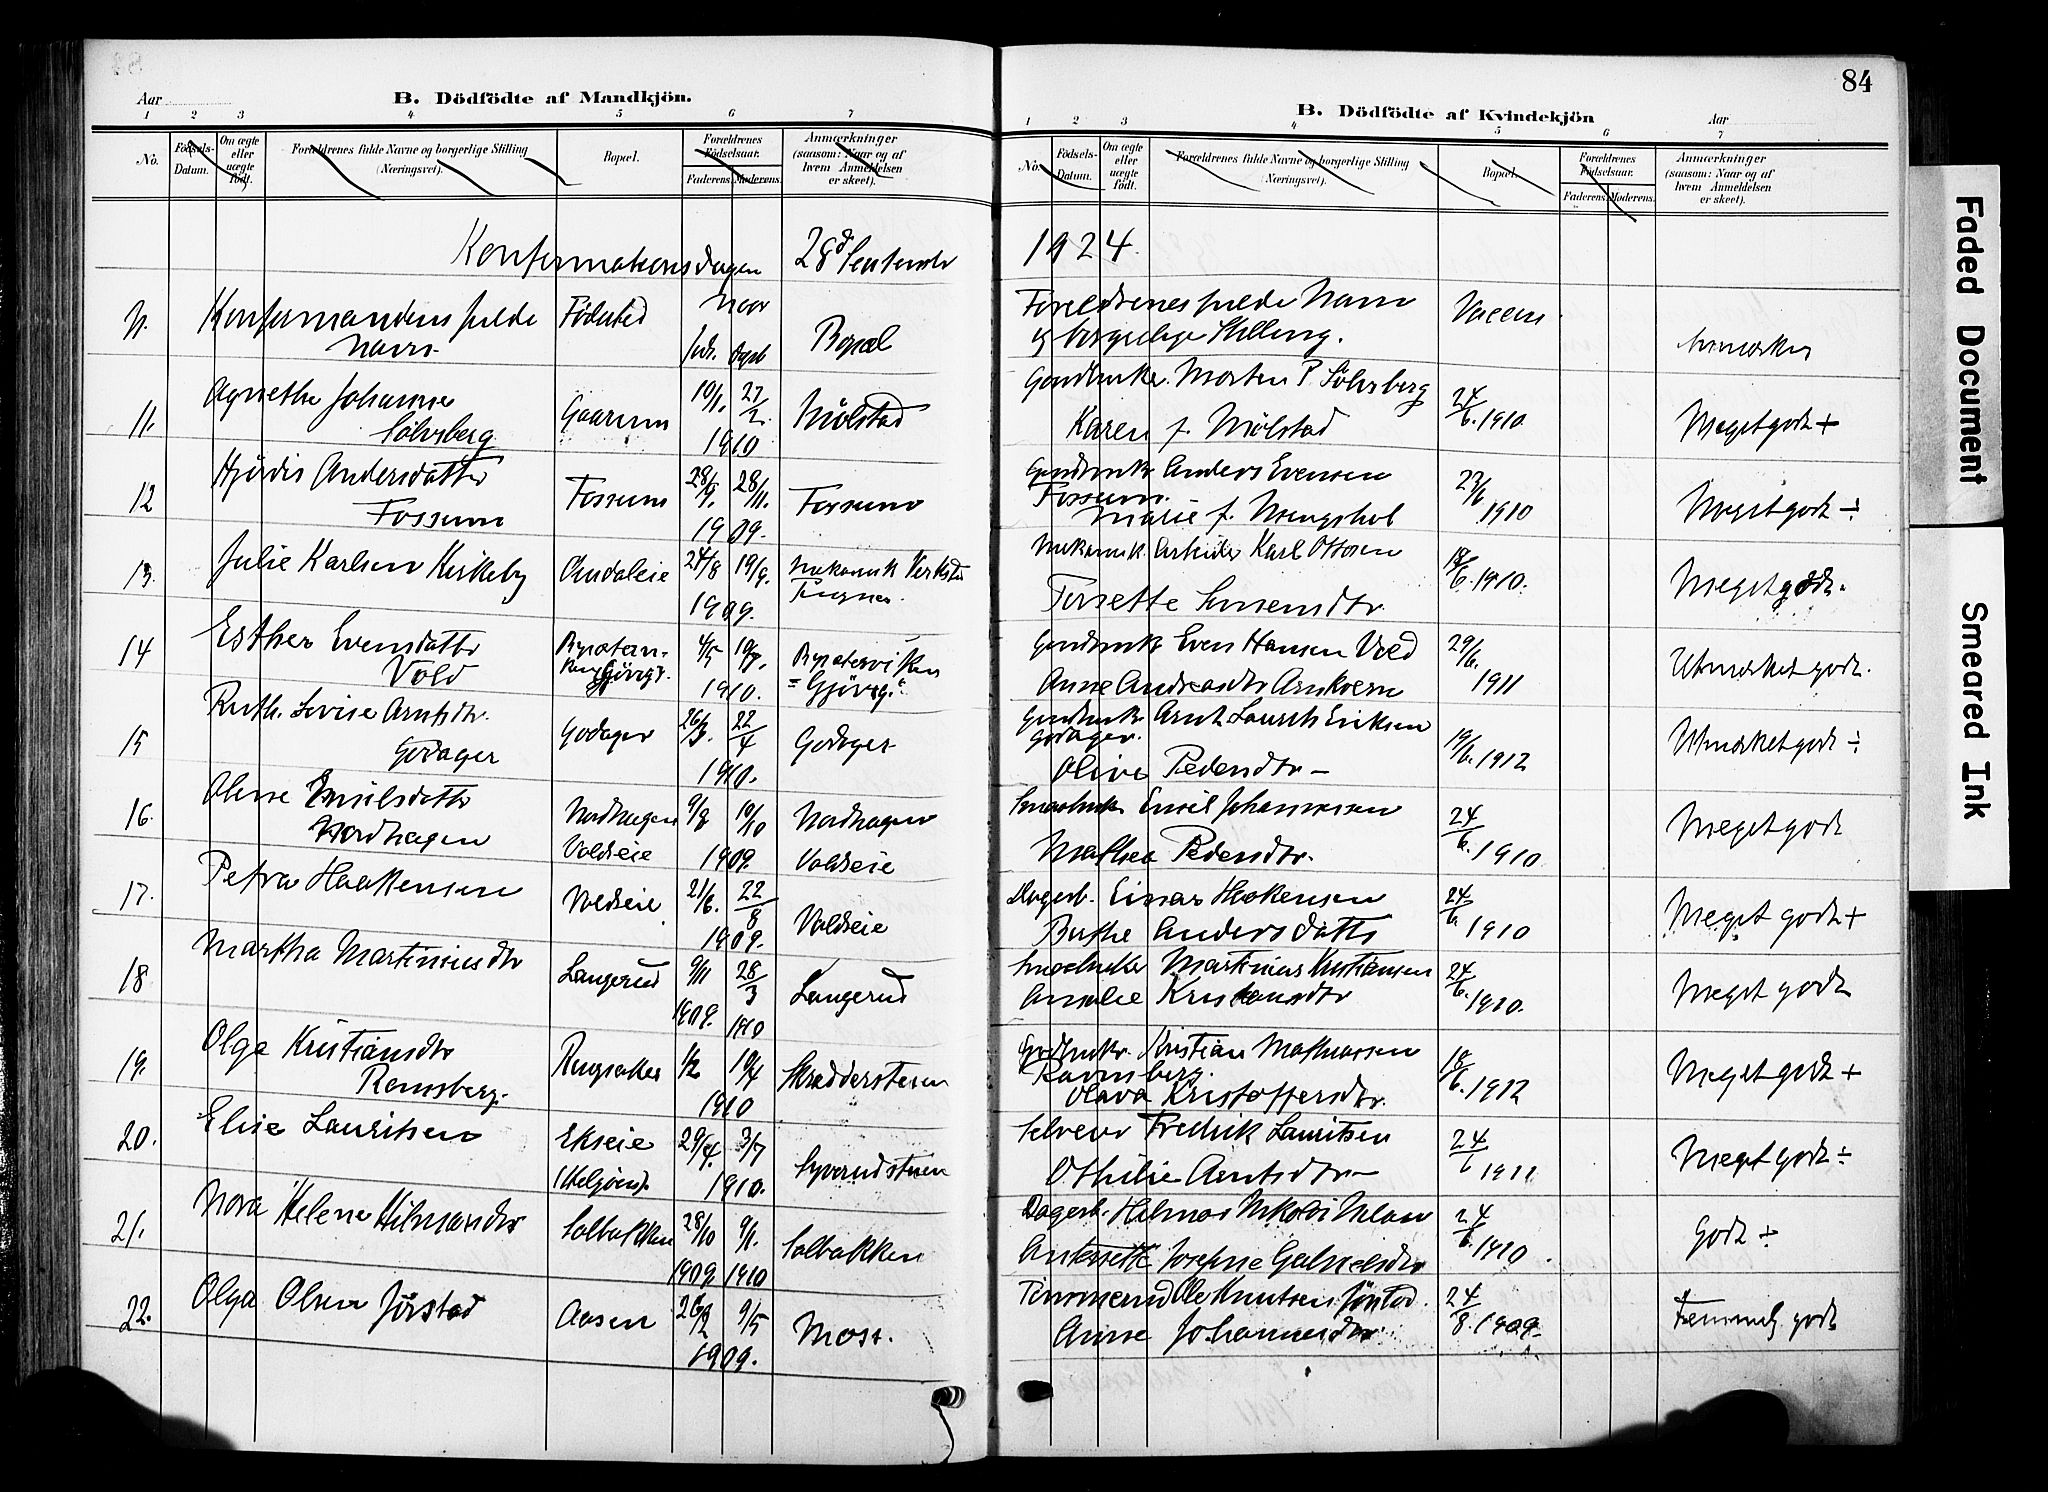 84
Aar
B. Dödfödte af Mandkjön.
1 2 3 4 5 6 7
No.
Födsels-Datum.
Om ægte eller uægte födt.
Forældrenes fulde Navne og borgerlige Stilling (Næringsvei).
Bopæl.
Forældrenes Födselsaar.
Faderens. Moderens.
Anmærkninger (saasom: Naar og af hvem Anmeldelsen er skeet).
Konfirmationsdagen 28d September
N. Konfirmandens fulde Navn.
Födested
Naar
föd. döpt
Bopæl
11. Agnethe Johanne Sölvsberg Gaarum 10/1. 27/2. 1910 Mölstad
12 Hjördis Andersdatter Fossum Fossum 28/9. 28/11. 1909. Fossum
13. Julie Karlsen Kirkeby 24/8 19/9. 1909. mekanisk
14 Esther Evensdatter Vold 4/5 1910. Gjövig
15 Ruth Lovise Arntsdtr. Godager Godager 26/3. 22/4 1910. Godager
16. Oline Emilsdatter Nordhagen Nordhagen Voldseie 9/8 10/10 1909. Nordhagen Voldseie
17. Petra Haakensen Voldseie 21/6. 22/8 1909. Voldseie
18 Martha Martiniusdtr Langerud 9/11 1909. 28/3 1910 Langerud
19. Olga Kristiansdtr Ramsberg. Ringsaker 1/2 10/4 1910 Skradderstuen
20. Elise Lauritsen Ekseie (Helgöen). 29/4. 3/7 1910. Syverudstuen
21. Nora Helene Hilmarsdtr Solbakken 28/10 1909 9/1. 1910 Solbakken
22. Olga Olsen Jörstad Aasen 26/2 9/5 1909. Moss.
B. Dödfödte af Kvindekjön
Aar
1 2 3 4 5 6 7
No.
Födsels-Datum.
Om ægte eller uægte födt.
Forældrenes fulde Navne og borgerlige Stilling (Næringsvei).
Bopæl.
Forældrenes Födselsaar.
Faderens. Moderens.
Anmærkninger (saasom: Naar og af hvem Anmeldelsen er skeet).
1924.
Foreldrenes fulde Navn og borgerlige Stilling.
Vaccin.
Anmerkn
Gaardbruker Morten P. Sölvsberg
Karen f. Mölstad 24/6. 1910. Meget godt +
Gaardbruker Anders Evensen Fossum.
Marie f. Mengshol 23/6 1910 Meget godt ÷
Mekanisk Arbeider Karl Ottosen
18/6. 1910. Meget godt.
Gaardbruker Even Hansen Vold
Anne Andreasdtr Arnkvern 29/6. 1911 Utmerket godt.
Gaardbruker Arnt Laurits Eriksen Godager.
Olive Pedersdtr - 19/6. 1912 Utmerket godt ÷
Smaabruker Emil Johannessen
Mathea Pedersdtr. 24/6. 1910 Meget godt
Dagarb. Einar Haakensen
Berthe Andersdatter 24/6 1910 Meget godt +
Smaabruker Martinius Kristiansen
Amalie Kristiansdtr 24/6. 1910. Meget godt
Gaardbruker Kristian Mathiassen Ramsberg.
Olava Kristoffersdtr. 18/6. 1912 Meget godt +
Selveier Fredrik Lauritsen
Othilie Arntsdtr 24/6 1911 Meget godt ÷
Dagarb. Helmer Nikolai
Antonette Josefine Gabrielsdtr 24/6. 1910. Godt ÷
Tömmermand Ole Knutsen Jörstad.
Anne Johannesdtr. 24/8. 1909. Temmelig godt
Faded Document
Smeared Ink